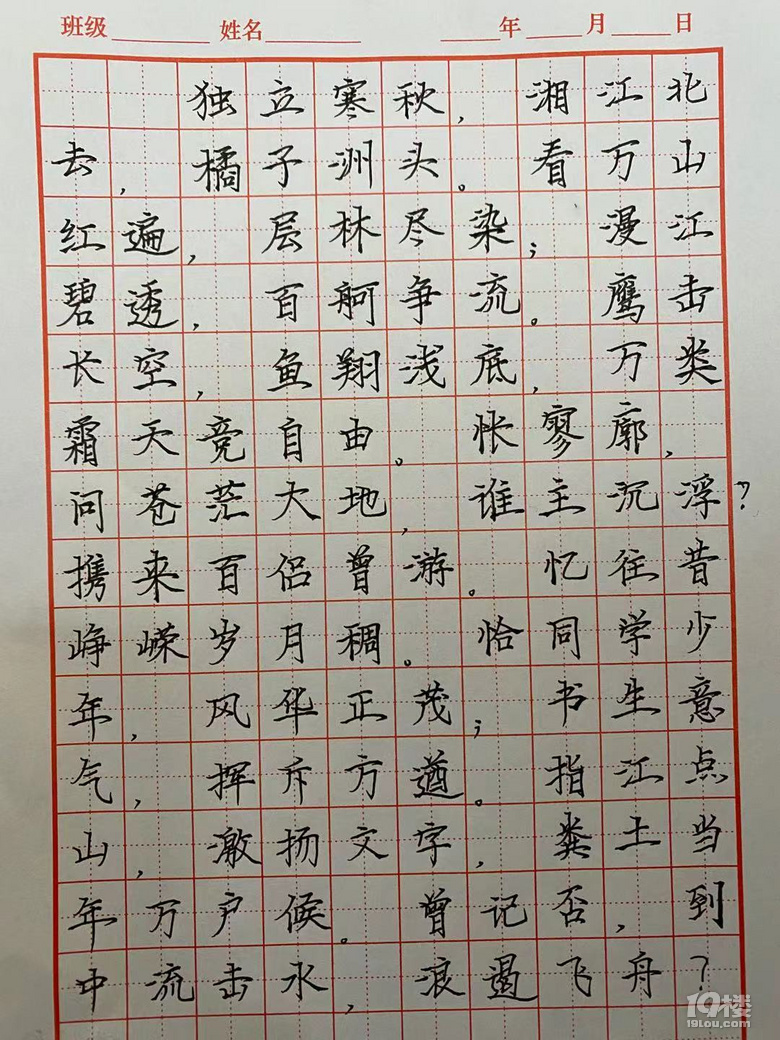 班级 姓名 年 月 日
独立寒秋，湘江北
去，橘子洲头。看万山
红遍，层林尽染；漫江
碧透，百舸争流。鹰击
长空，鱼翔浅底，万类
霜天竞自由。怅寥廓，
问苍茫大地，谁主沉浮？
携来百侣曾游。忆往昔
峥嵘岁月稠。恰同学少
年，风华正茂；书生意
气，挥斥方遒。指江点
山，激扬文字，粪土当
年万户候。曾记否，到
中流击水，浪遏飞舟？
19楼
19lou.com